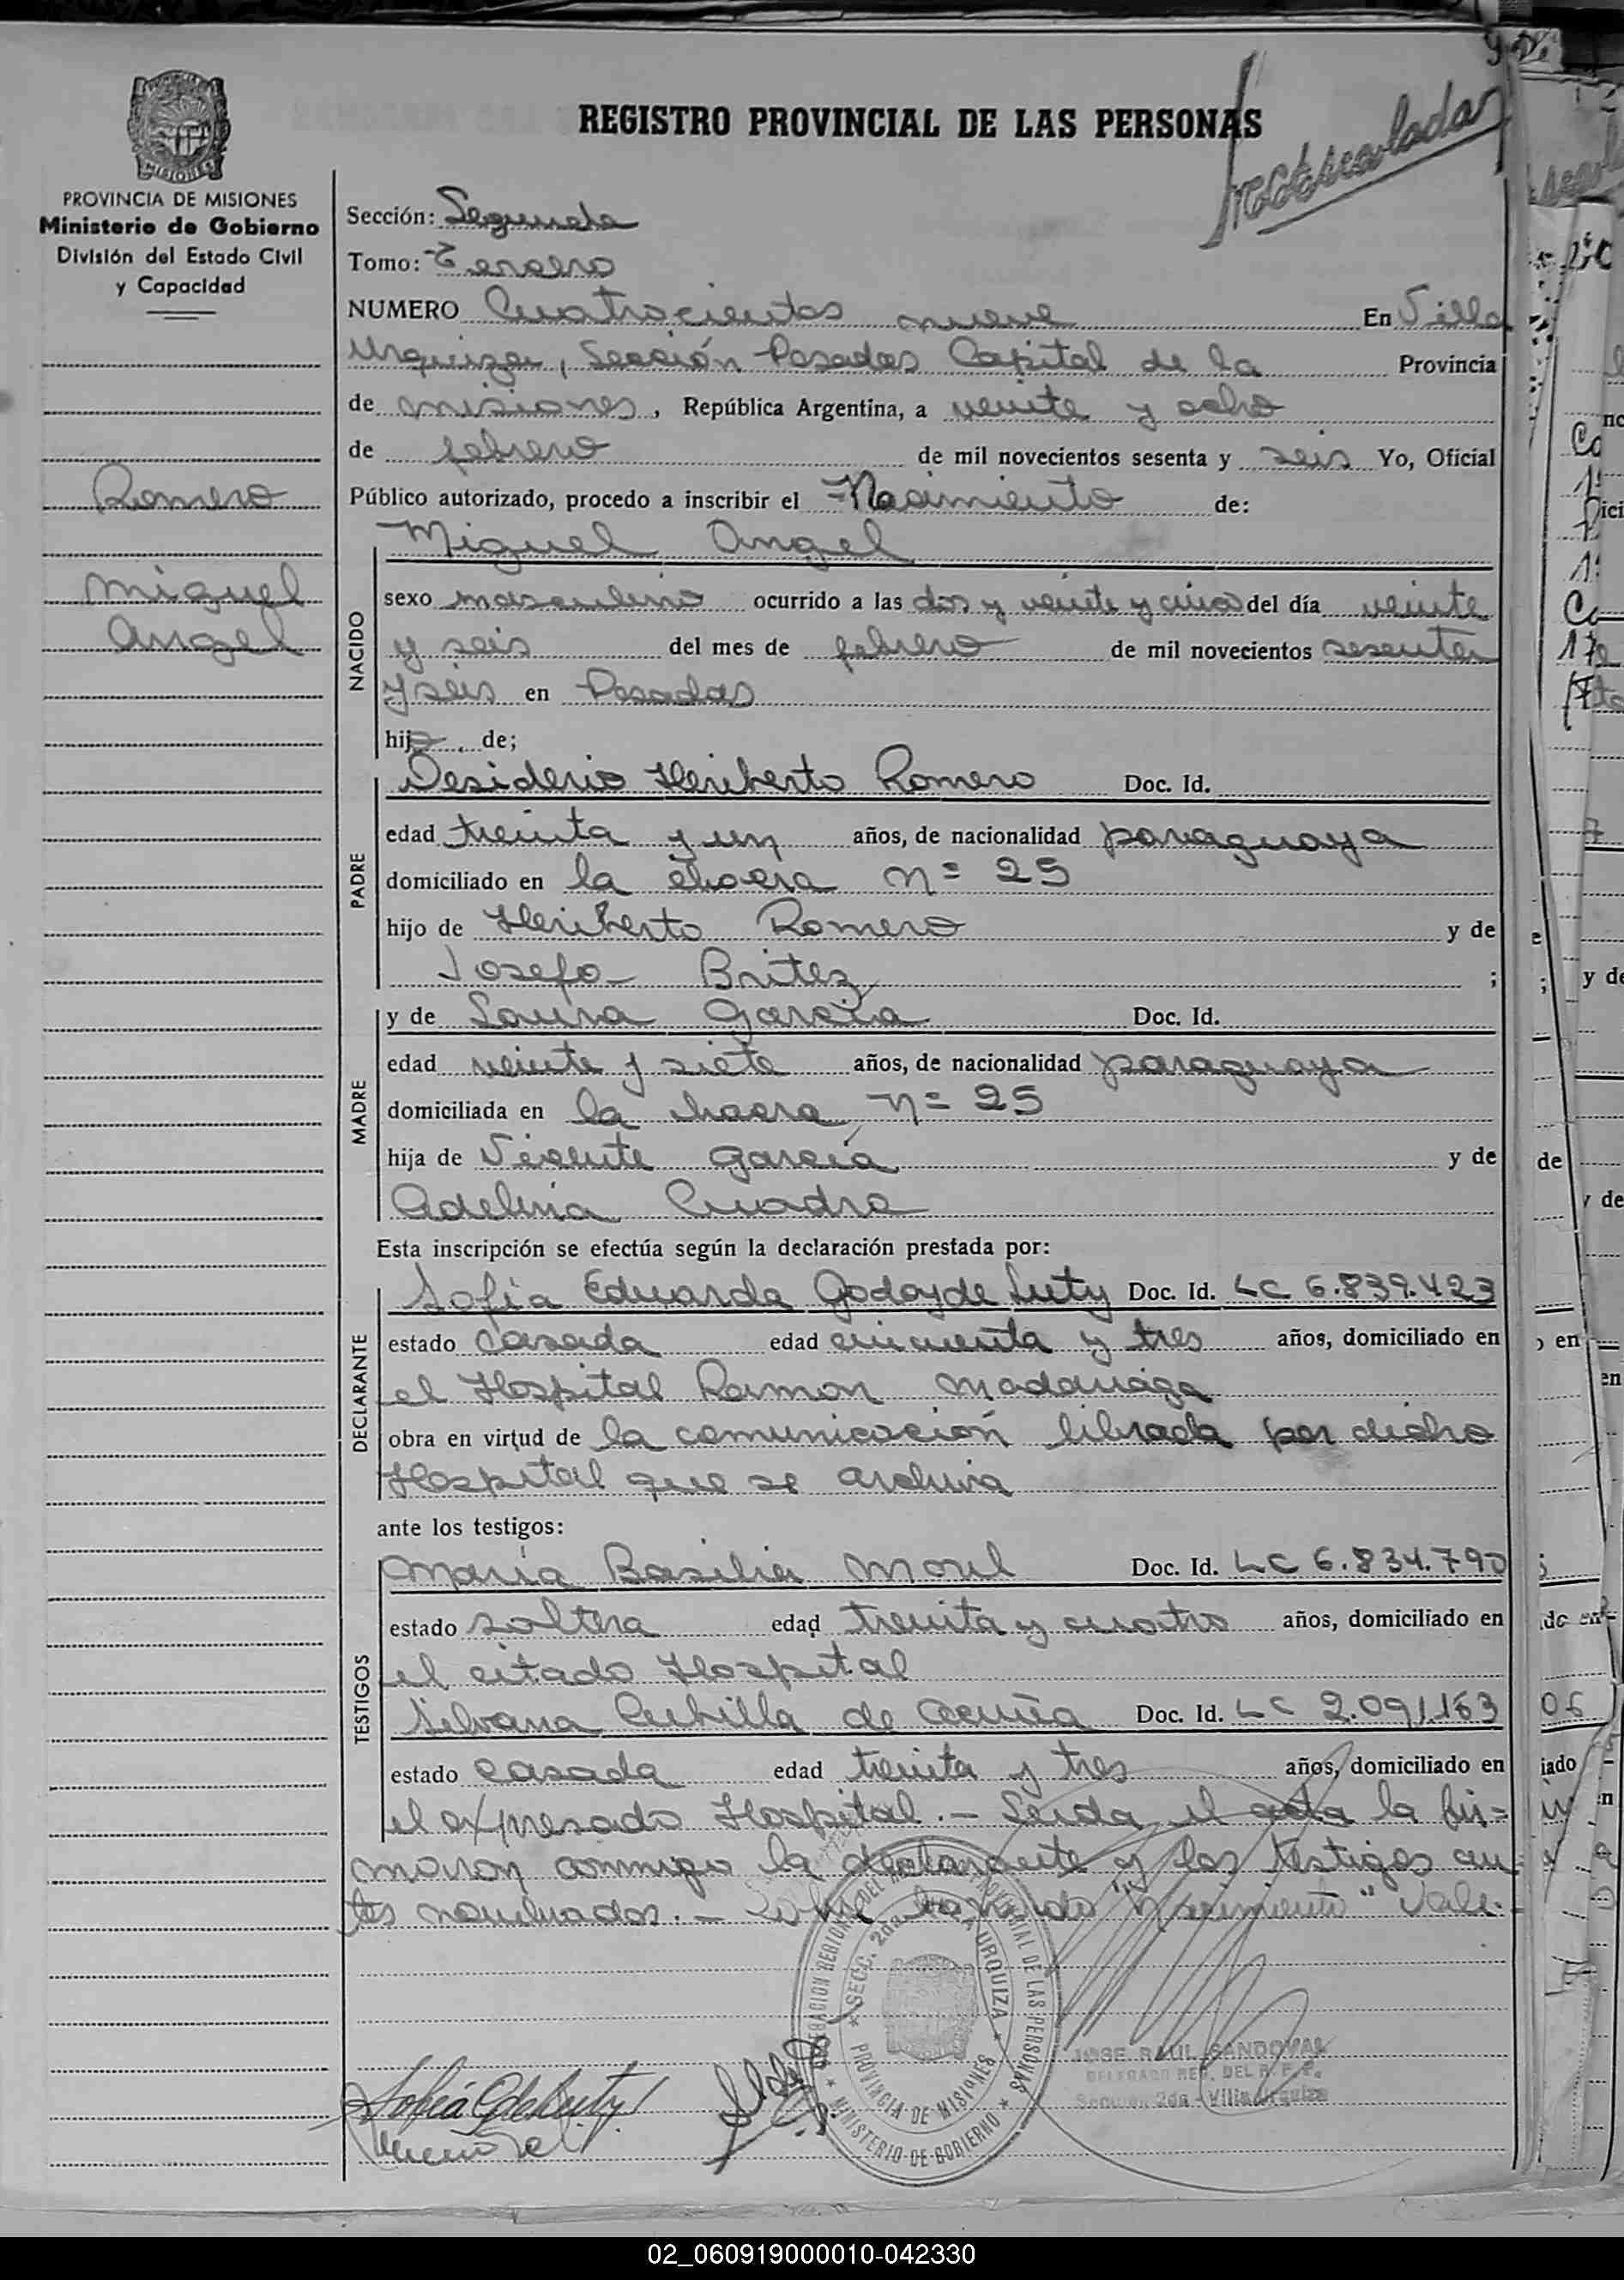 REGISTRO PROVINCIAL DE LAS PERSONAS
PROVINCIA DE MISIONES
Ministerio de Gobierno
División del Estado Civil
y Capacidad
Romero
Miguel
Angel
Sección: Segunda
Tomo: Tercero
NUMERO Cuatrocientos nueve En Villa
Urquiza, Sección Posadas Capital de la Provincia
de misiones, República Argentina, a veinte y ocho
de febrero de mil novecientos sesenta y seis Yo, Oficial
Público autorizado, procedo a inscribir el Nacimiento de:
Miguel Angel
NACIDO
sexo masculino ocurrido a las dos y veinte y cinco del día veinte
y seis del mes de febrero de mil novecientos sesenta
y seis en Posadas
hijo de;
Desiderio Heriberto Romero Doc. Id.
PADRE
edad treinta y un años, de nacionalidad paraguaya
domiciliado en la chacra nº 25
hijo de Heriberto Romero y de
Josefa Britez ;
y de Laura García Doc. Id.
MADRE
edad veinte y siete años, de nacionalidad paraguaya
domiciliada en la chacra nº 25
hija de Vicente García y de
Adelina Cuadra
Esta inscripción se efectúa según la declaración prestada por:
Sofía Eduarda Godoy de Luty Doc. Id. LC 6.839.423
DECLARANTE
estado casada edad cincuenta y tres años, domiciliado en
el Hospital Ramon Madariaga
obra en virtud de la comunicación librada por dicho
Hospital que se archiva
ante los testigos:
María Basilia Morel Doc. Id. LC 6.834.790
TESTIGOS
estado soltera edad treinta y cuatro años, domiciliado en
el citado Hospital
Silvana Cubilla de Acuña Doc. Id. LC 2.091.163
estado casada edad treinta y tres años, domiciliado en
el expresado Hospital.- Leida el acta la fir=
maron conmigo la declarante y los testigos an
tes nombrados.- Sobre borrado "Nacimiento" Vale.
DELEGACION REGIONAL DEL REGISTRO PROVINCIAL DE LAS PERSONAS
SECC. 2da. VILLA URQUIZA
PROVINCIA DE MISIONES
MINISTERIO DE GOBIERNO
JOSE RAUL SANDOVAL
DELEGADO REG. DEL R. P. P.
Sección 2da - Villa Urquiza
02_060919000010-042330